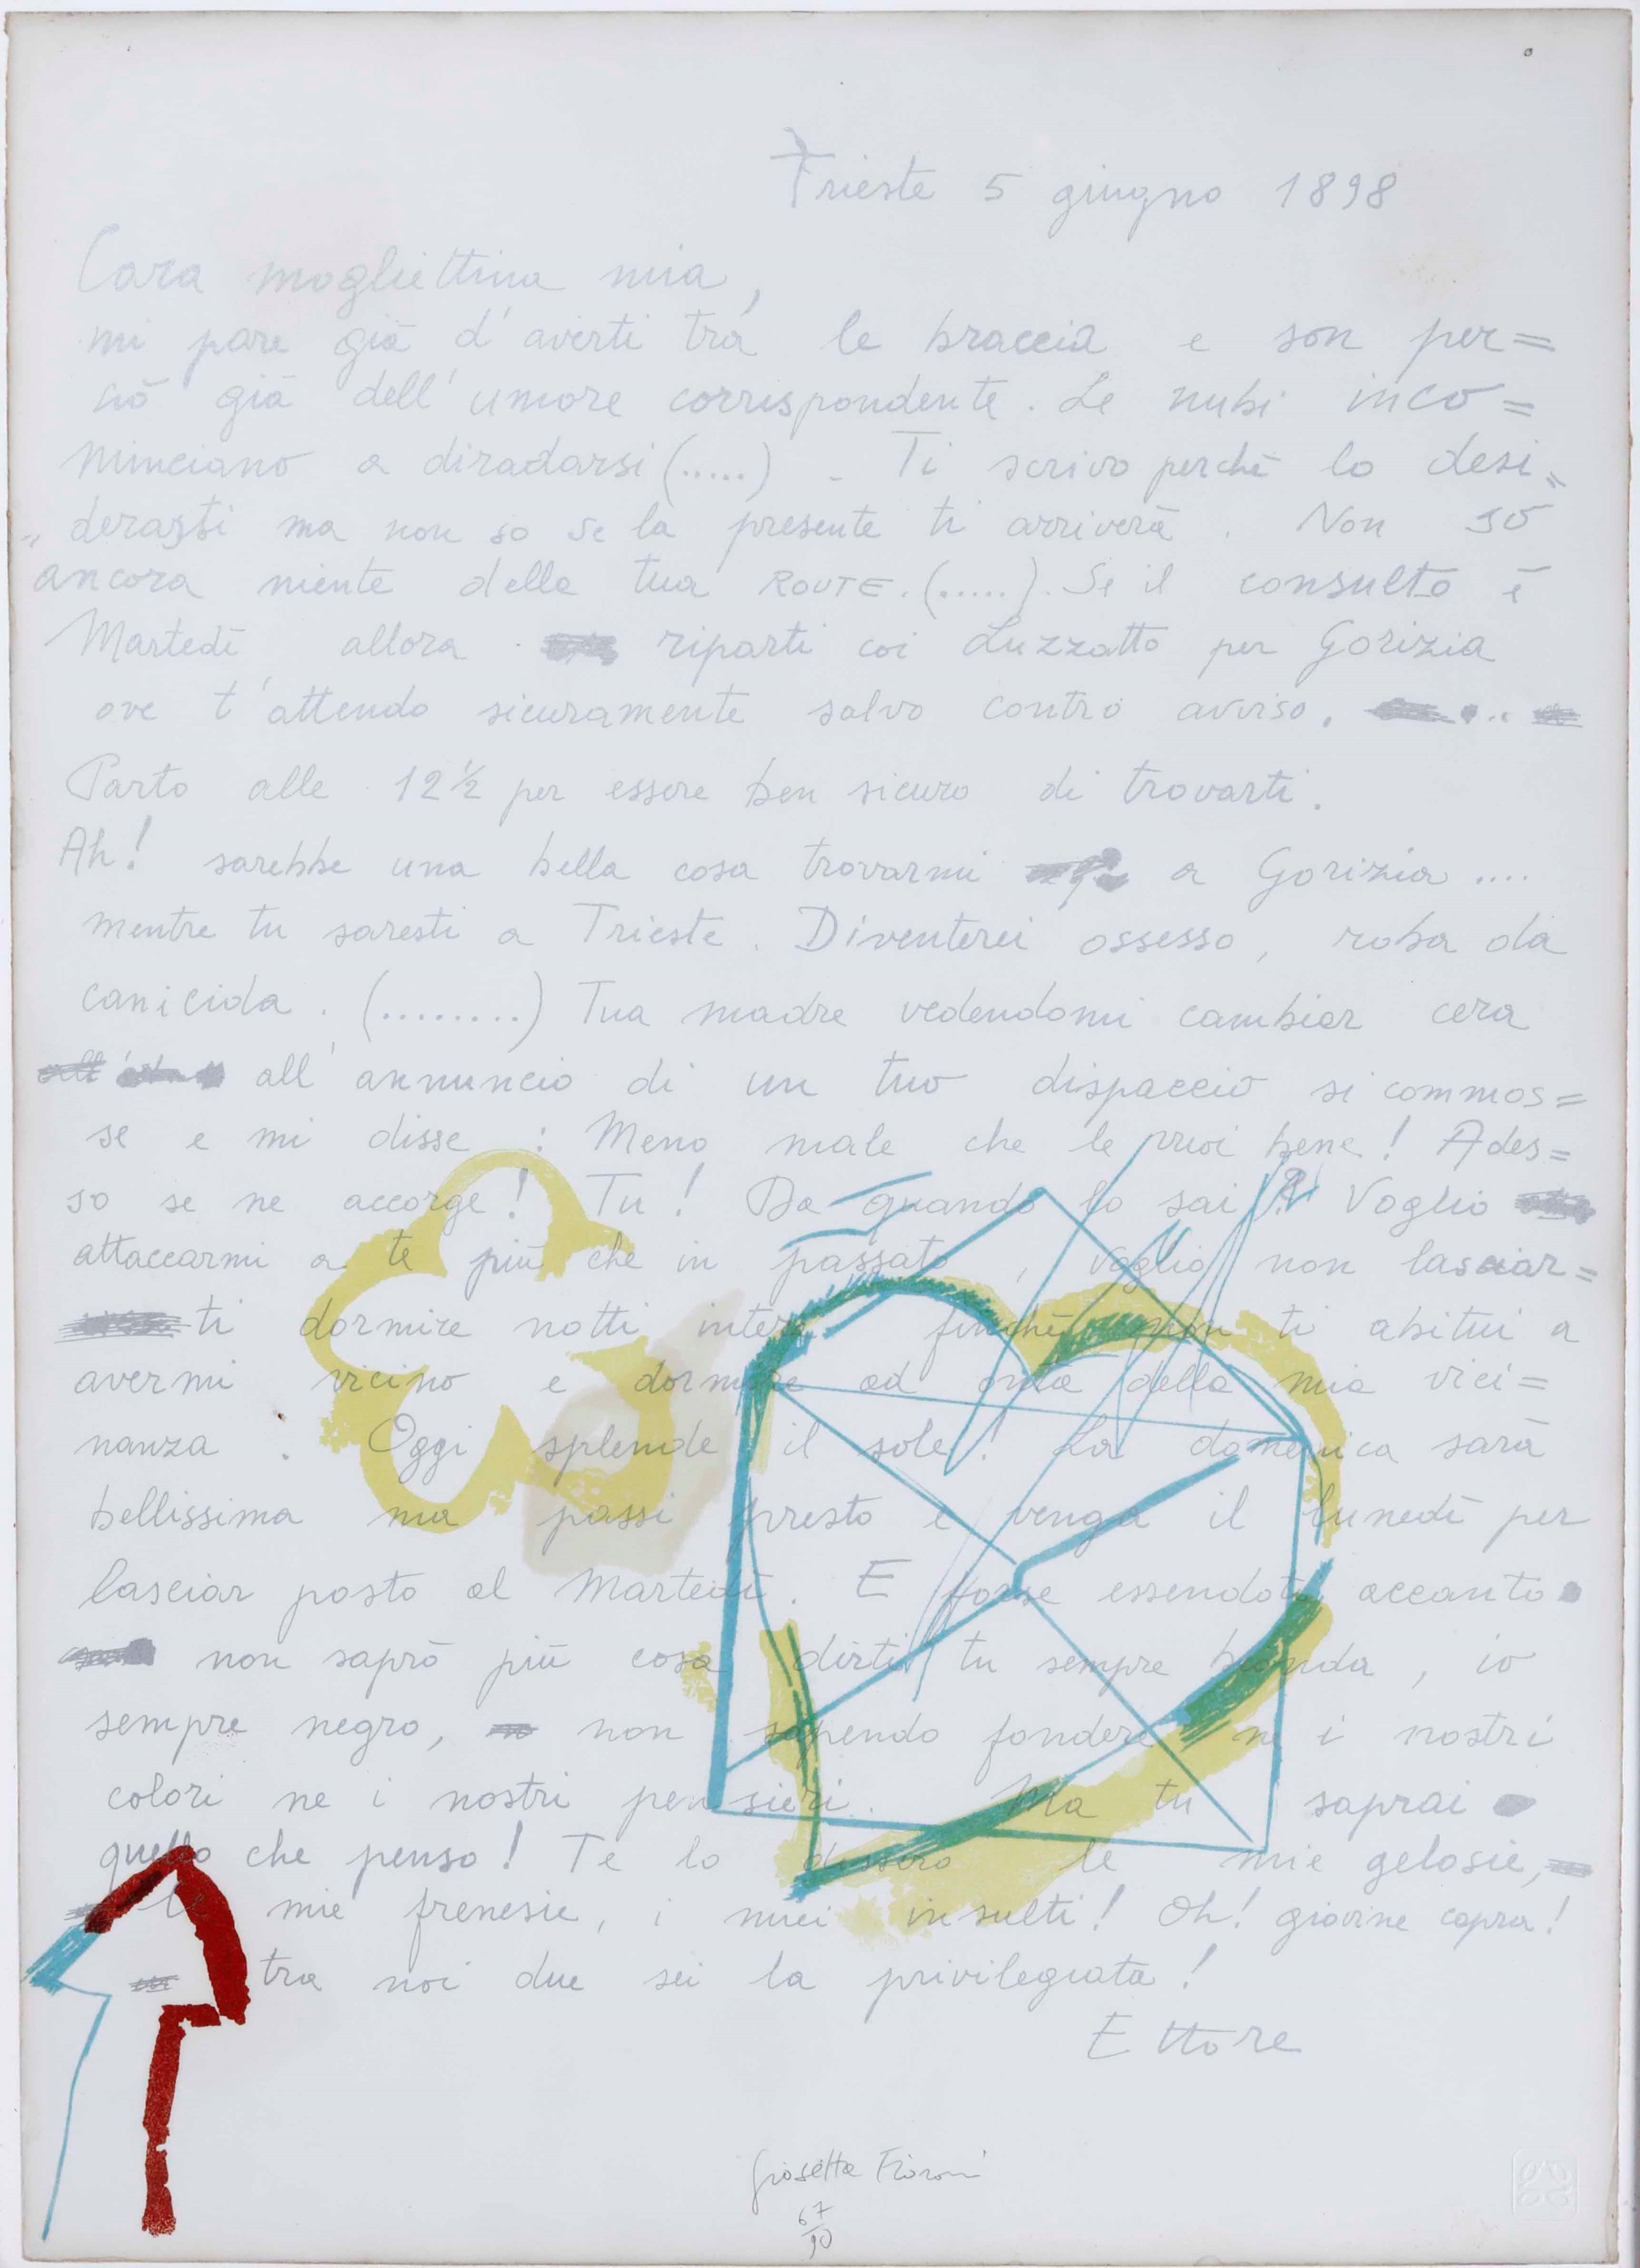 Trieste 5 giugno 1898
Cara mogliettina mia,
mi pare già d'averti tra le braccia e son per=
ciò già dell'umore corrispondente. Le nubi inco=
minciano a diradarsi (.....) - Ti scrivo perchè lo desi=
"derasti ma non so se la presente ti arriverà. Non so
ancora niente della tua ROUTE. (.....). Se il consulto è
Martedì allora riparti coi Luzzatto per Gorizia
ove t'attendo sicuramente salvo contro avviso. ...
Parto alle 12½ per essere ben sicuro di trovarti.
Ah! sarebbe una bella cosa trovarmi a Gorizia ....
mentre tu saresti a Trieste. Diventerei ossesso, roba da
canicida. (........) Tua madre vedendomi cambiar cera
all'annuncio di un tuo dispaccio si commos=
se e mi disse : Meno male che le vuoi bene! Ades=
so se ne accorge! Tu! Da quando lo sai?! Voglio
attaccarmi a te più che in passato, voglio non lasciar=
ti dormire notti intere finchè non ti abitui a
avermi vicino e dormire ad onta della mia vici=
nanza. Oggi splende il sole! La domenica sarà
bellissima ma passi presto e venga il lunedì per
lasciar posto al Martedì. E forse essendoti accanto
non saprò più cosa dirti tu sempre bionda, io
sempre negro, non sapendo fondere ne i nostri
colori ne i nostri pensieri. Ma tu saprai
quello che penso! Te lo dissero le mie gelosie,
le mie frenesie, i miei insulti! Oh! giovine capra!
tra noi due sei la privilegiata!
Ettore
Giosetta Fioroni
67/90